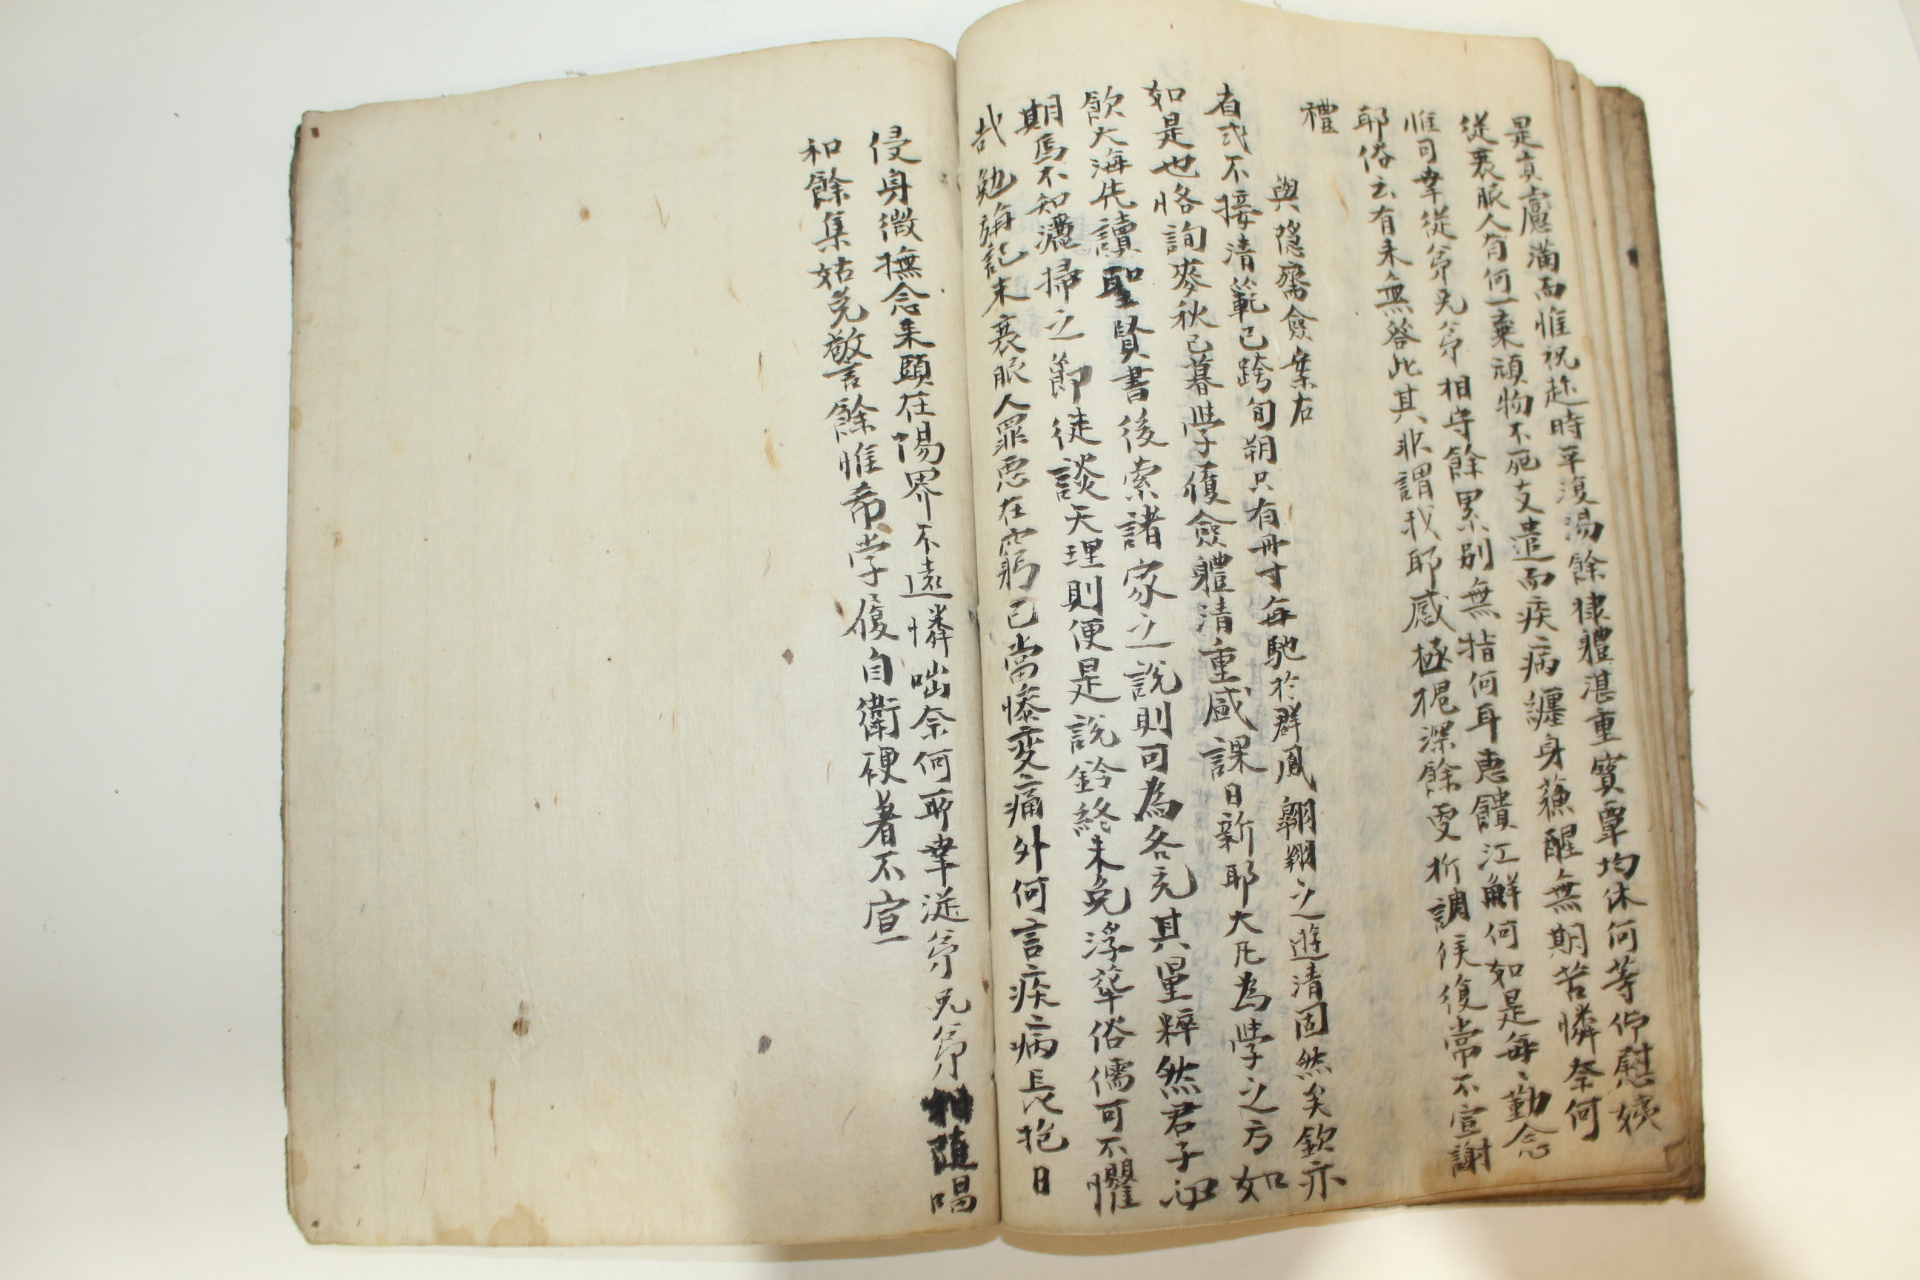 是真慮滿而惟祝赴時平復湯餘棣體湛重寳覃均休何等仰慰姨
從衰脤人有何一棄頑物不死支遣而疾病纏身蘓醒無期苦憐奈何
惟可幸從弟兄弟相守餘累別無指何耳惠饋江鮮何如是每〻勤念
耶俗云有来無答此其非謂我耶感極愧深餘更祈調候復常不宣謝
禮
與隱齋僉案右
省式不接清範已跨旬朔只有丹寸每馳於群鳳翺翔之遊清固然矣欽亦
如是也恪詢麥秋已暮學履僉體清重咸課日新耶大凡為學之方如
飮大海先讀聖賢書後索諸家之說則可為各充其量粹然君子
期焉不知灑掃之節徒談天理則便是說鈴終未免浮華俗儒可不懼
哉勉旃記末衰脤人罪悪在窮已當慘変之痛外何言疾病長抱日
侵身微撫念来頤在陽界不遠憐咄奈何所幸従弟兄弟相随唱
和餘集姑免敬言餘惟希学履自衛硬着不宣